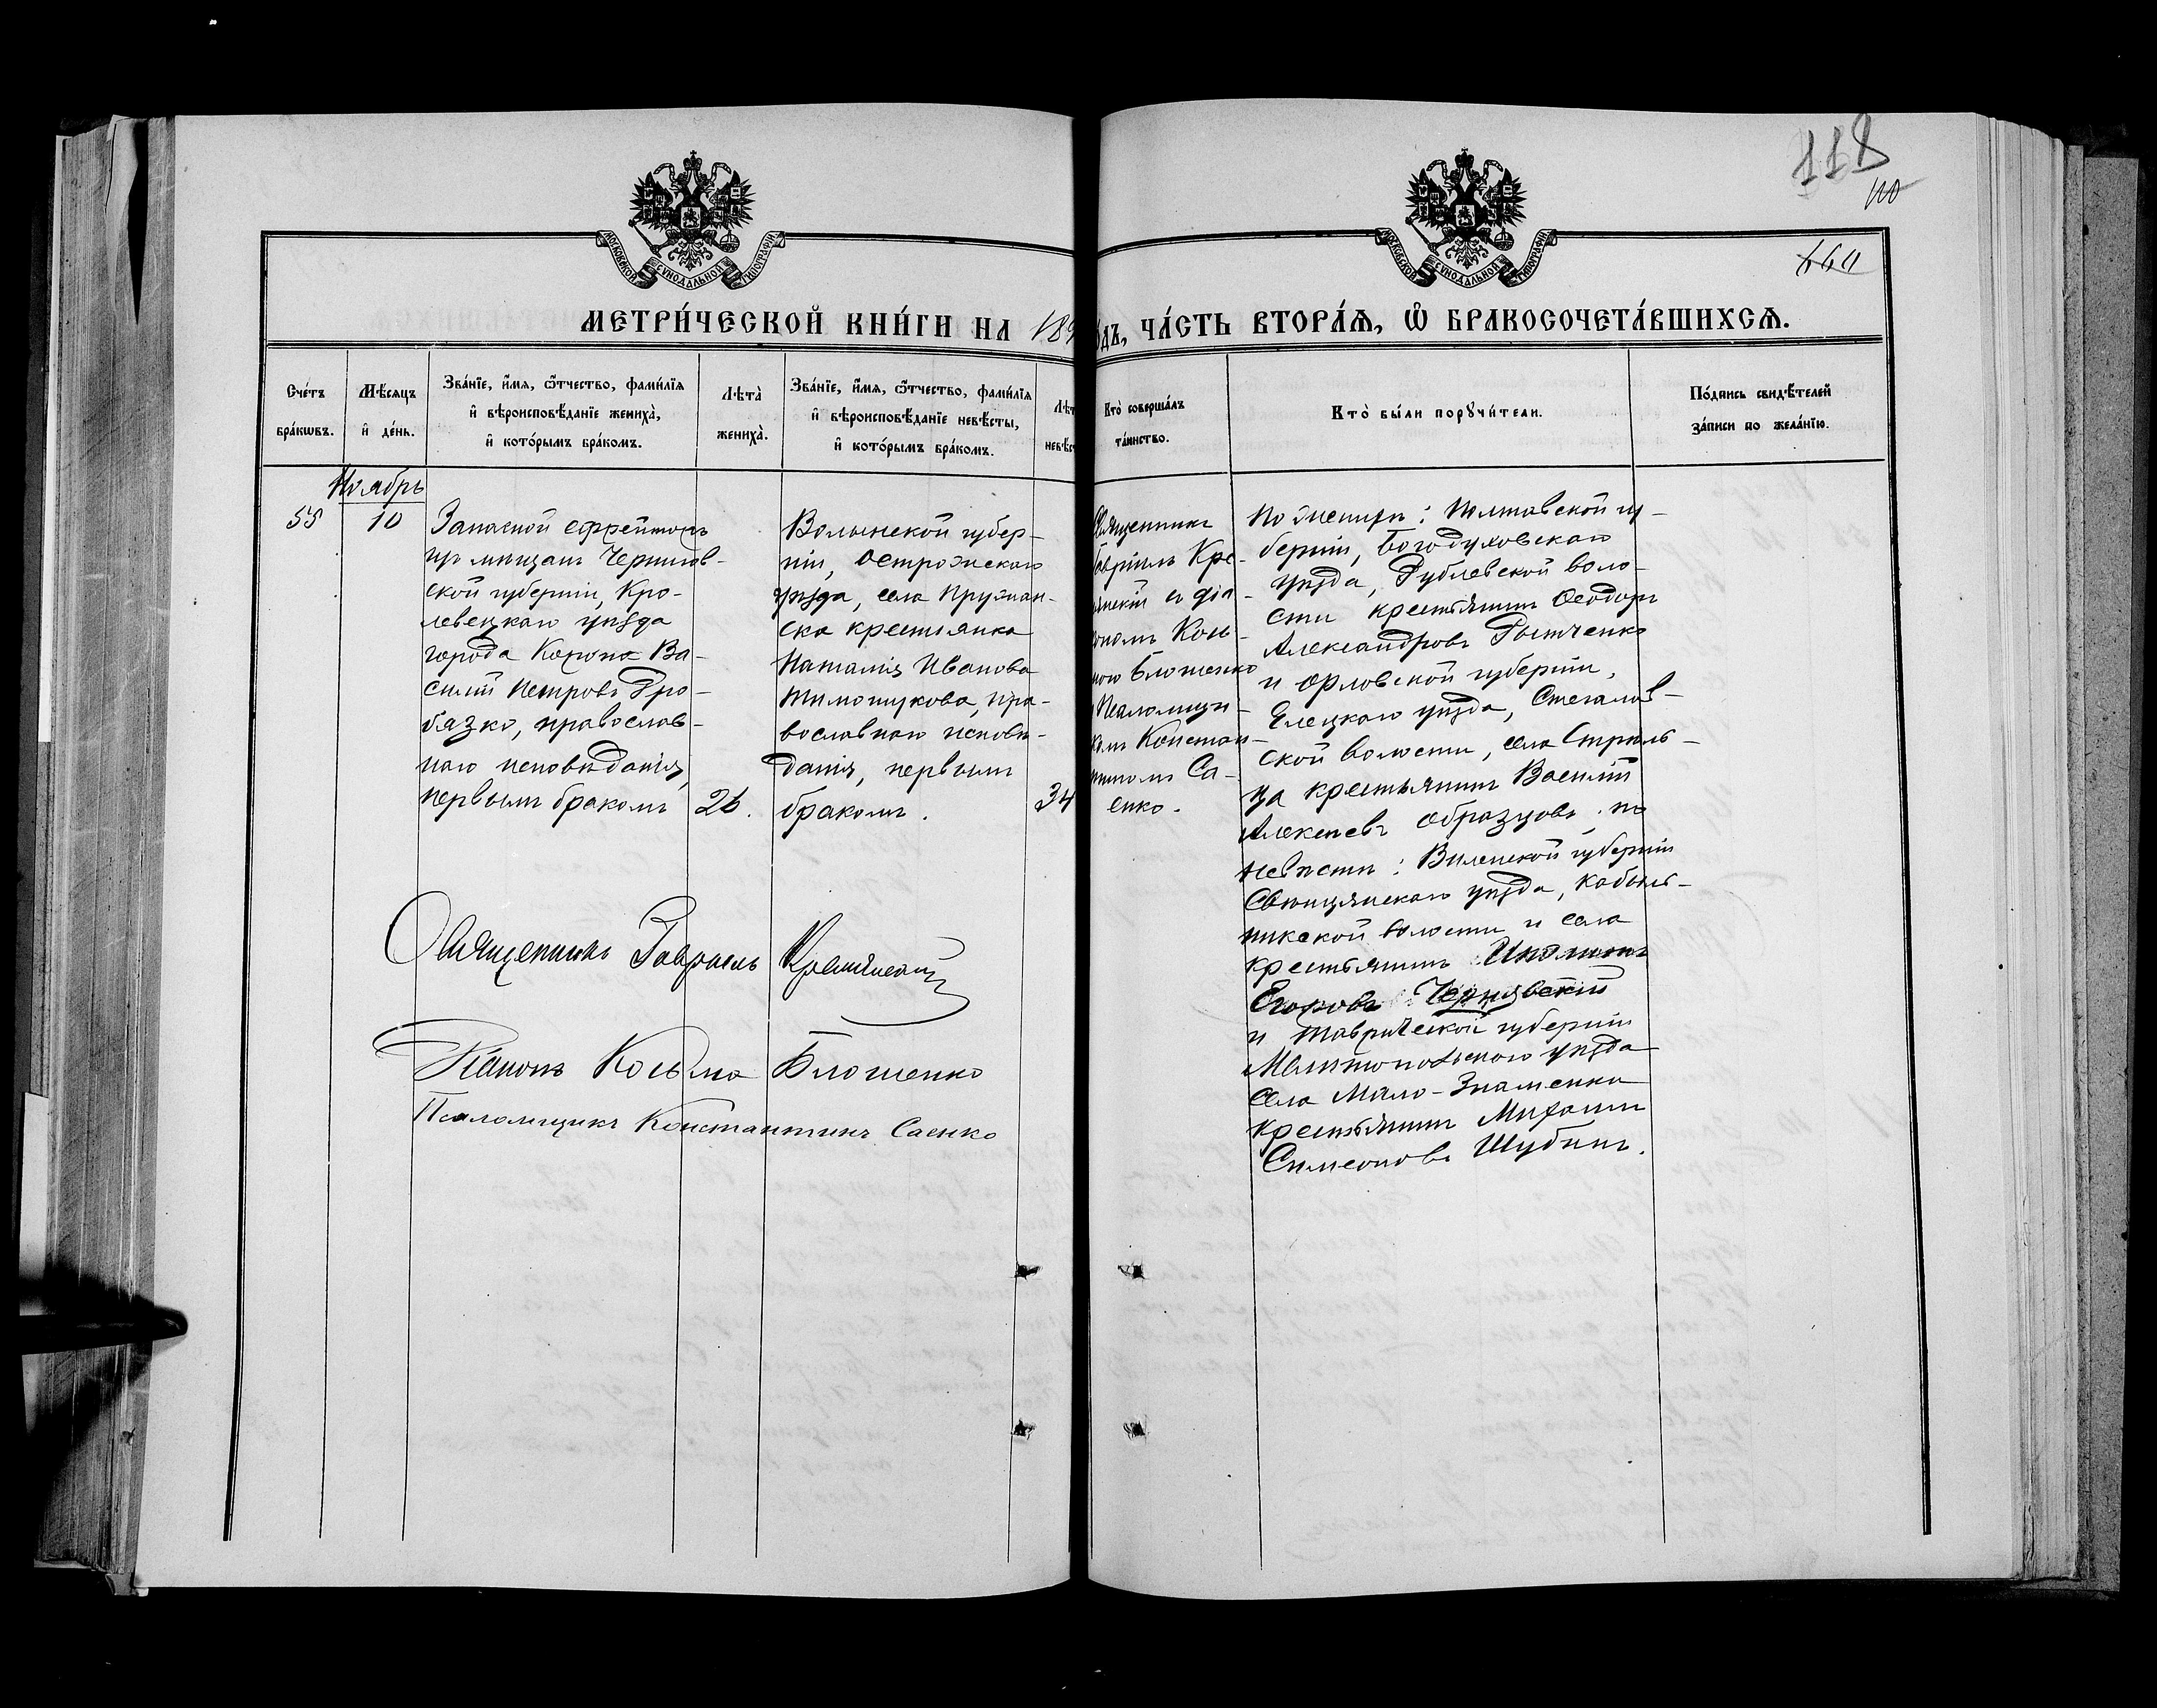 118
110
160
МОСКОВСКОЙ СѴНОДАЛЬНОЙ ТИПОГРАФІИ
МОСКОВСКОЙ СѴНОДАЛЬНОЙ ТИПОГРАФІИ
МЕТРИ́ЧЕСКОЙ КНИ́ГИ НА 189
ДЪ, ЧА́СТЬ ВТОРА́Ѧ, Ѡ҆ БРАКОСОЧЕТА́ВШИХСѦ.
Сче́тъ
бра́кѡвъ.
Мѣ́сѧцъ
и҆ де́нь.
Зва́нїе, и҆́мѧ, ѻ҆́тчество, фами́лїѧ
и҆ вѣроисповѣ́данїе жениха̀,
и҆ кото́рымъ бра́комъ.
Лѣта̀
жениха̀.
Зва́нїе, и҆́мѧ, ѻ҆́тчество, фами́лїѧ
и҆ вѣроисповѣ́данїе невѣ́сты,
и҆ кото́рымъ бра́комъ.
Лѣт
невѣс
Кто̀ соверша́лъ
та́инство.
Кто̀ бы́ли порꙋчи́тели.
По́дпись свидѣ́телей
за́писи по жела́нїю.
Ноябрь
55
10
Запасной ефрейторъ
изъ мѣщанъ Чернигов-
ской губерніи, Кро-
левецкаго уѣзда
города Коропа Ва-
силій Петровъ Дро-
бязко, православ-
наго исповѣданія,
первымъ бракомъ
26.
Волынской губер-
ніи, Острожскаго
уѣзда, села Пружан-
ска крестьянка
Наталія Иванова
Тимощукова, пра-
вославнаго исповѣ-
данія, первымъ
бракомъ.
34
Священникъ
авріилъ Кре-
нскій съ діа-
кономъ Кось-
мою Блошенко
Псаломщи-
комъ Констан-
тиномъ Са-
енко.
По женихѣ: Полтавской гу-
берніи, Богодуховскаго
уѣзда, Рублевской воло-
сти крестьянинъ Ѳеодоръ
Александровъ Рытченко
и Орловской губерніи,
Елецкаго уѣзда, Стегалов-
ской волости, села Стрѣль-
ца крестьянинъ Василій
Алексѣевъ Образцовъ; по
невѣстѣ: Виленской губерніи
Свенцянскаго уѣзда, Кобыль-
никской волости и села
крестьянинъ
Егоровъ Чернявскій
и Таврической губерніи
Мелитопольскаго уѣзда
села Мало-Знаменка
крестьянинъ Михаилъ
Симеоновъ Шубинъ.
Священникъ Гавріилъ
Діаконъ Косьма Блошенко
Псаломщикъ Константинъ Саенко